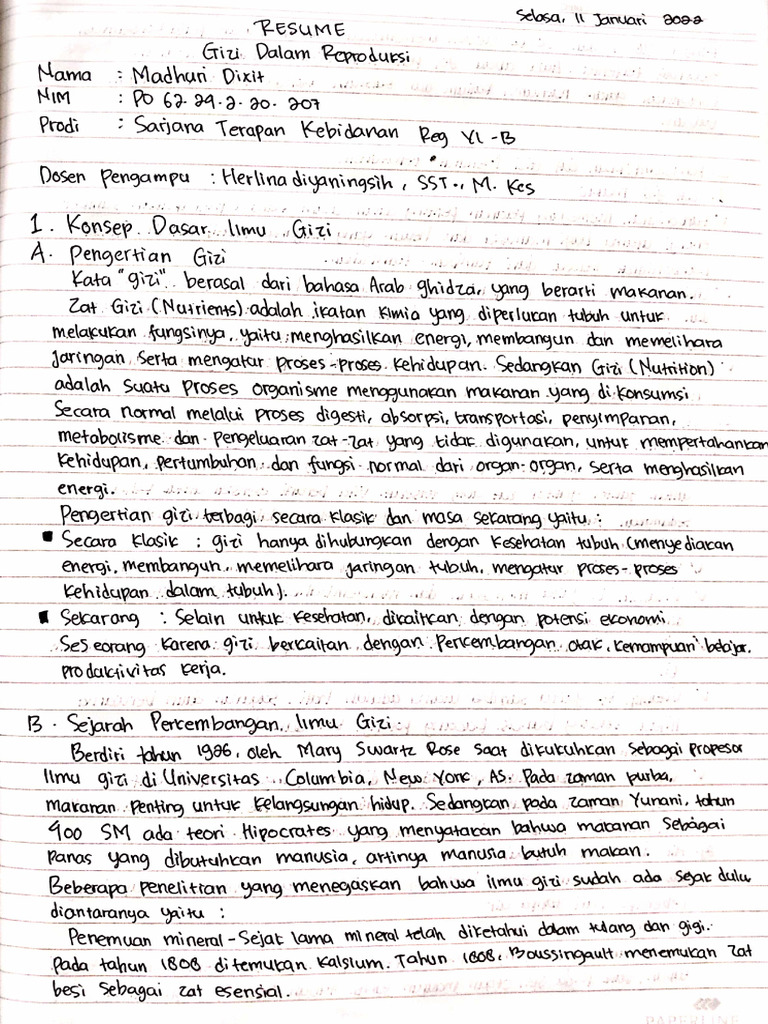 Selasa, 11 Januari 2022
RESUME
Gizi Dalam Reproduksi
Nama : Madhuri Dixit
NIM : PO 62.24.2.20.207
Prodi : Sarjana Terapan Kebidanan Reg VI-B
Dosen Pengampu : Herlinadiyaningsih, SST., M. Kes
1. Konsep Dasar Ilmu Gizi
A. Pengertian Gizi
Kata "gizi" berasal dari bahasa Arab ghidza, yang berarti makanan.
Zat Gizi (Nutrients) adalah ikatan kimia yang diperlukan tubuh untuk
melakukan fungsinya, yaitu menghasilkan energi, membangun dan memelihara
jaringan, serta mengatur proses-proses kehidupan. Sedangkan Gizi (Nutrition)
adalah suatu proses organisme menggunakan makanan yang di konsumsi
Secara normal melalui proses digesti, absorpsi, transportasi, penyimpanan,
metabolisme dan pengeluaran zat-zat yang tidak digunakan, untuk mempertahankan
kehidupan, pertumbuhan dan fungsi normal dari organ-organ, serta menghasilkan
energi.
Pengertian gizi terbagi secara klasik dan masa sekarang yaitu :
▪ Secara klasik : gizi hanya dihubungkan dengan kesehatan tubuh (menyediakan
energi, membangun, memelihara jaringan tubuh, mengatur proses-proses
kehidupan dalam tubuh).
▪ Sekarang : Selain untuk kesehatan, dikaitkan dengan potensi ekonomi
Seseorang karena gizi berkaitan dengan Perkembangan otak, kemampuan belajar,
produktivitas kerja.
B. Sejarah Perkembangan Ilmu Gizi
Berdiri tahun 1926, oleh Mary Swartz Rose saat dikukuhkan sebagai propesor
Ilmu gizi di Universitas Columbia, New York, AS. Pada zaman purba,
makanan penting untuk kelangsungan hidup. Sedangkan pada zaman Yunani, tahun
400 SM ada teori Hipocrates yang menyatakan bahwa makanan sebagai
panas yang dibutuhkan manusia, artinya manusia butuh makan.
Beberapa penelitian yang menegaskan bahwa ilmu gizi sudah ada sejak dulu,
diantaranya yaitu :
Penemuan mineral - Sejak lama mineral telah diketahui dalam tulang dan gigi.
pada tahun 1808 ditemukan kalsium. Tahun 1808, Boussingault menemukan zat
besi sebagai zat esensial.
PAPERLINE